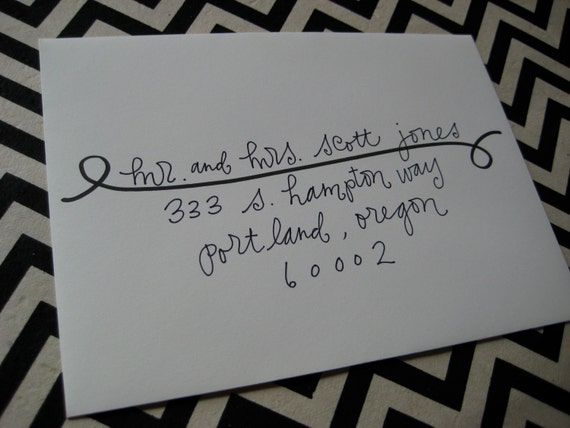 mr. and mrs. scott jones
333 s. hampton way
portland, oregon
60002